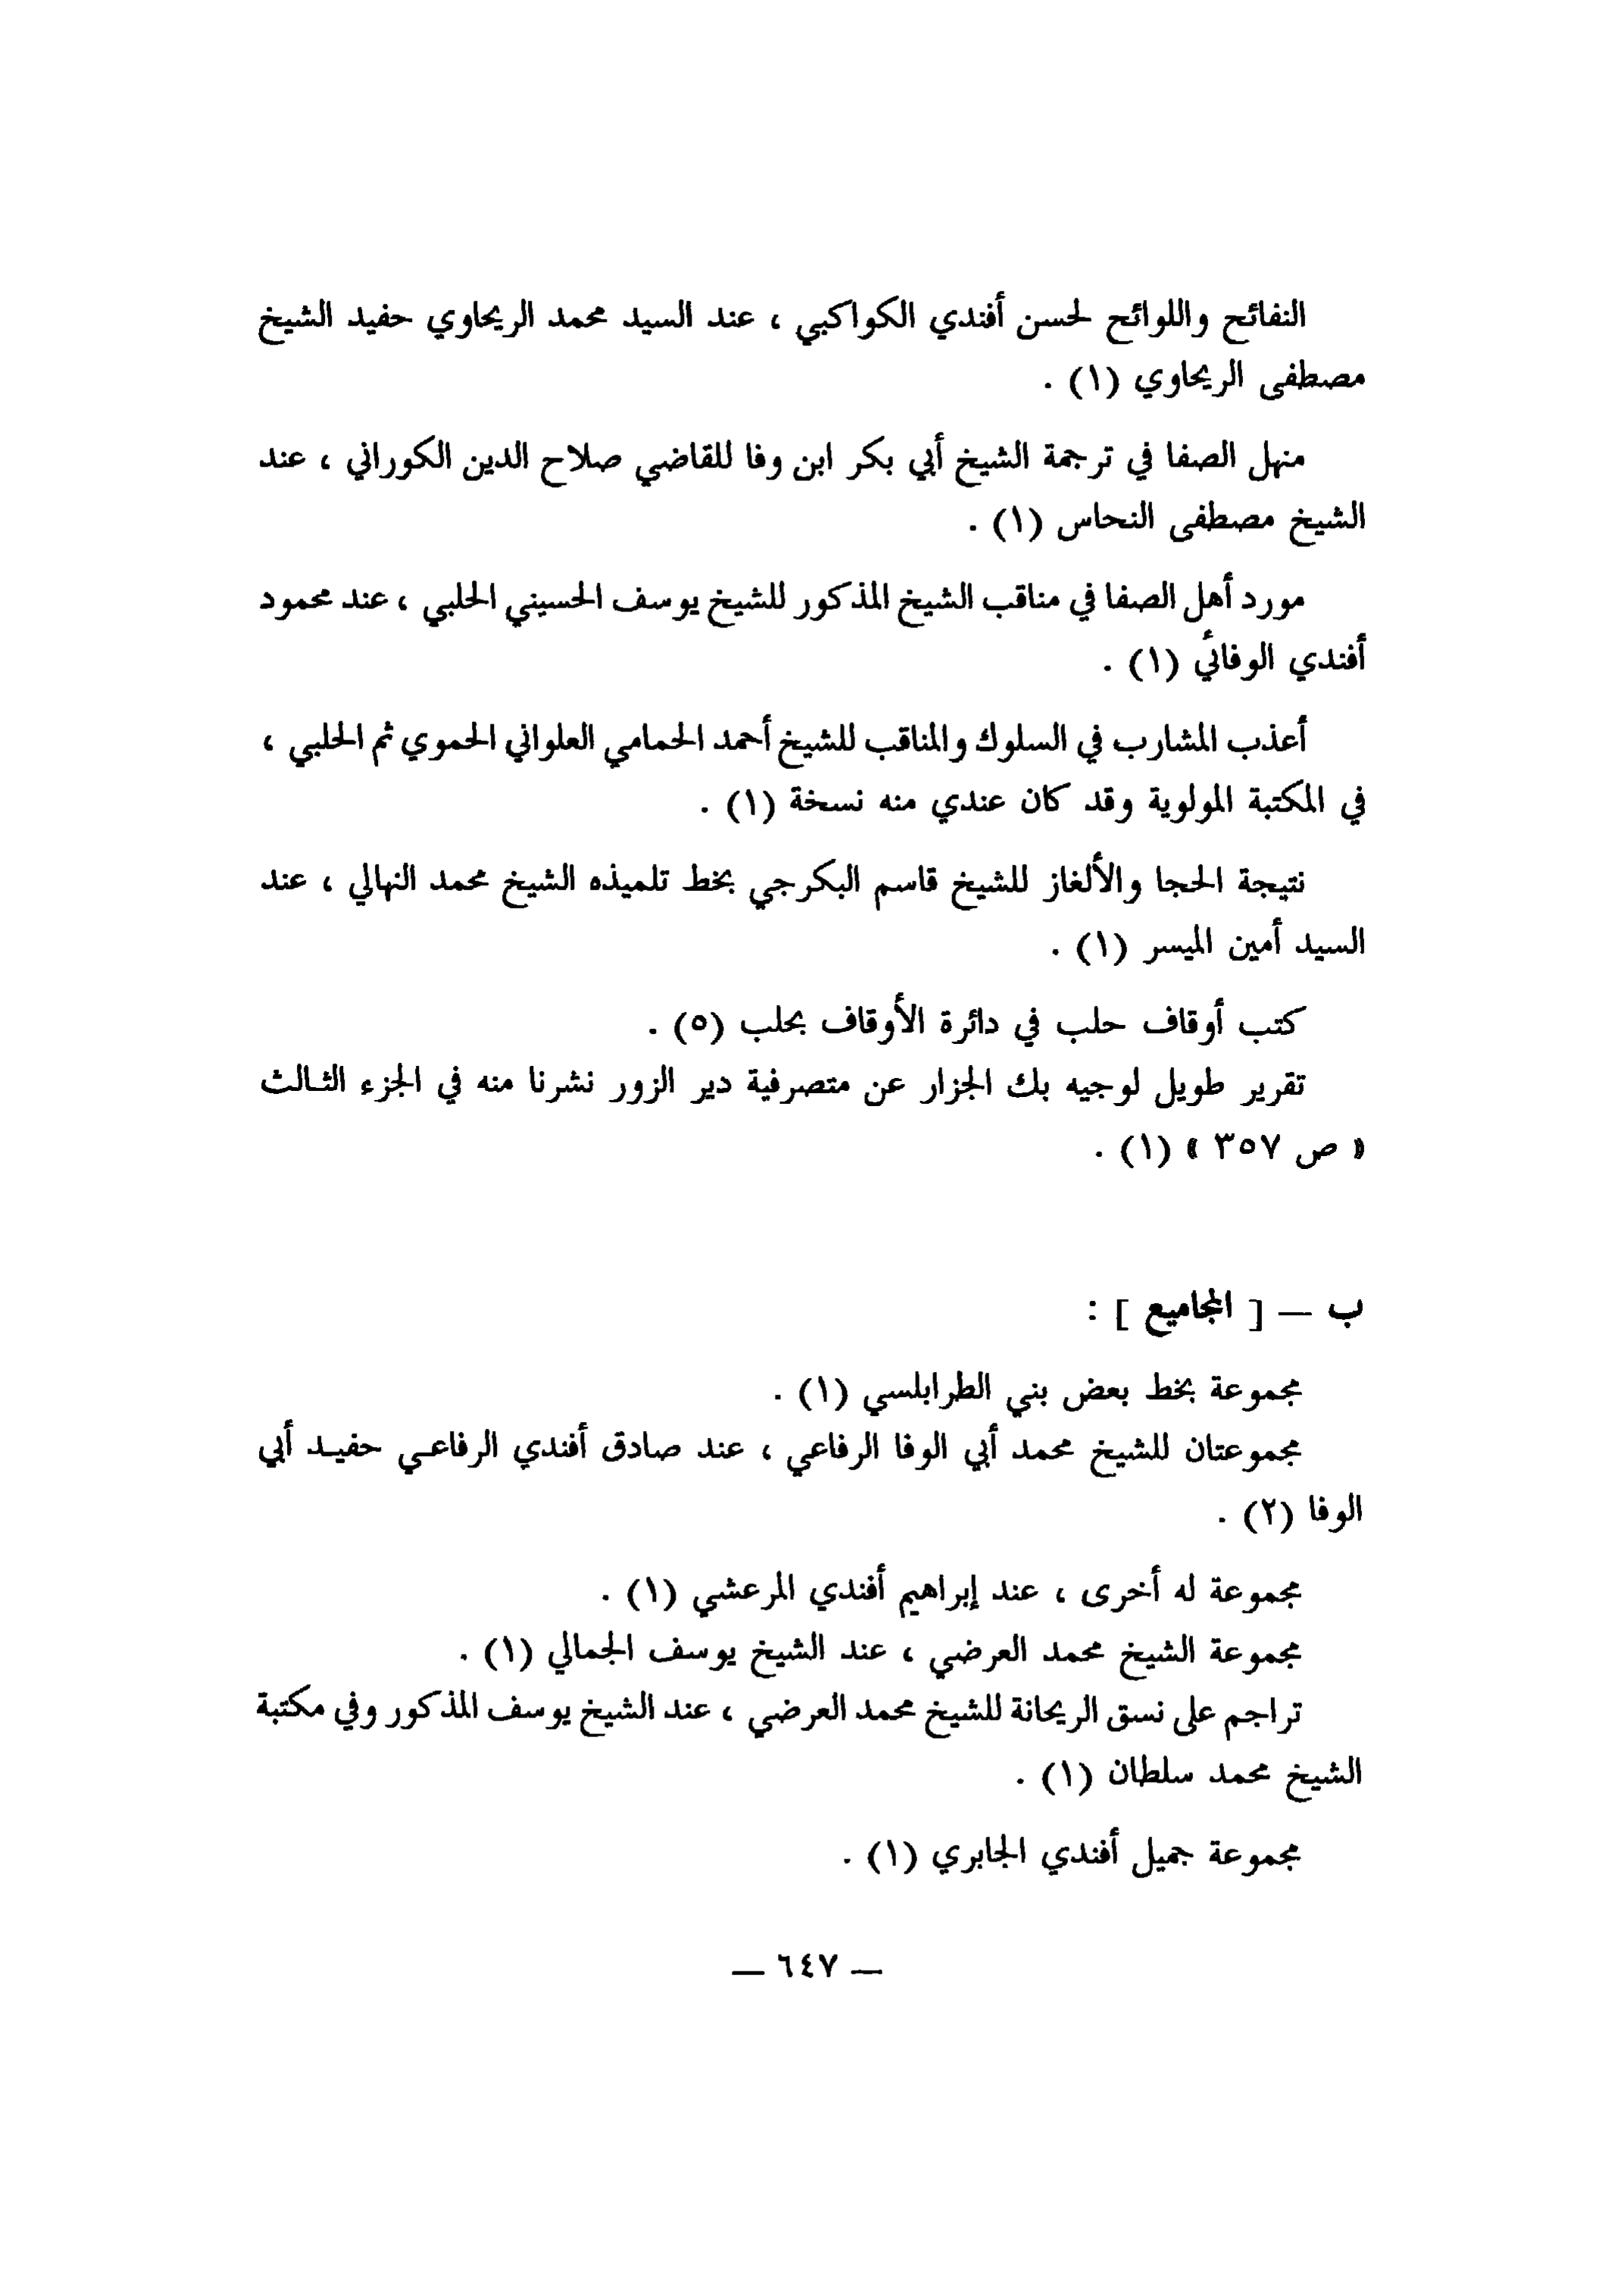 النفائح واللوائح لحسن أفندي الكواكبي ، عند السيد محمد الريحاوي حفيد الشيخ
مصطفى الريحاوي (١) .
منهل الصفا في ترجمة الشيخ أبي بكر ابن وفا للقاضي صلاح الدين الكوراني ، عند
الشيخ مصطفى النحاس (١) .
مورد أهل الصفا في مناقب الشيخ المذكور للشيخ يوسف الحسيني الحلبي ، عند محمود
أفندي الوفائي (١) .
أعذب المشارب في السلوك والمناقب للشيخ أحمد الحمامي العلواني الحموي ثم الحلبي ،
في المكتبة المولوية وقد كان عندي منه نسخة (١) .
نتيجة الحجا والألغاز للشيخ قاسم البكرجي بخط تلميذه الشيخ محمد النهالي ، عند
السيد أمين الميسر (١) .
كتب أوقاف حلب في دائرة الأوقاف بحلب (٥) .
تقرير طويل لوجيه بك الجزار عن متصرفية دير الزور نشرنا منه في الجزء الثالث
« ص ٣٥٧ » (١) .
ب — [ المجاميع ] :
مجموعة بخط بعض بني الطرابلسي (١) .
مجموعتان للشيخ محمد أبي الوفا الرفاعي ، عند صادق أفندي الرفاعي حفيد أبي
الوفا (٢) .
مجموعة له أخرى ، عند إبراهيم أفندي المرعشي (١) .
مجموعة الشيخ محمد العرضي ، عند الشيخ يوسف الجمالي (١) .
تراجم على نسق الريحانة للشيخ محمد العرضي ، عند الشيخ يوسف المذكور وفي مكتبة
الشيخ محمد سلطان (١) .
مجموعة جميل أفندي الجابري (١) .
— ٦٤٧ —